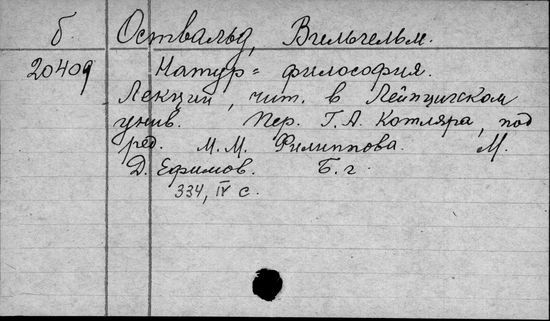 б. Оствальд, Вильгельм.
20409 Натур = философия.
Лекции, чит. в Лейпцигском
унив. Пер. Г. А. Котляра, под
ред. М. М. Филиппова. М.
Д. Ефимов. Б. г.
334, IV с.